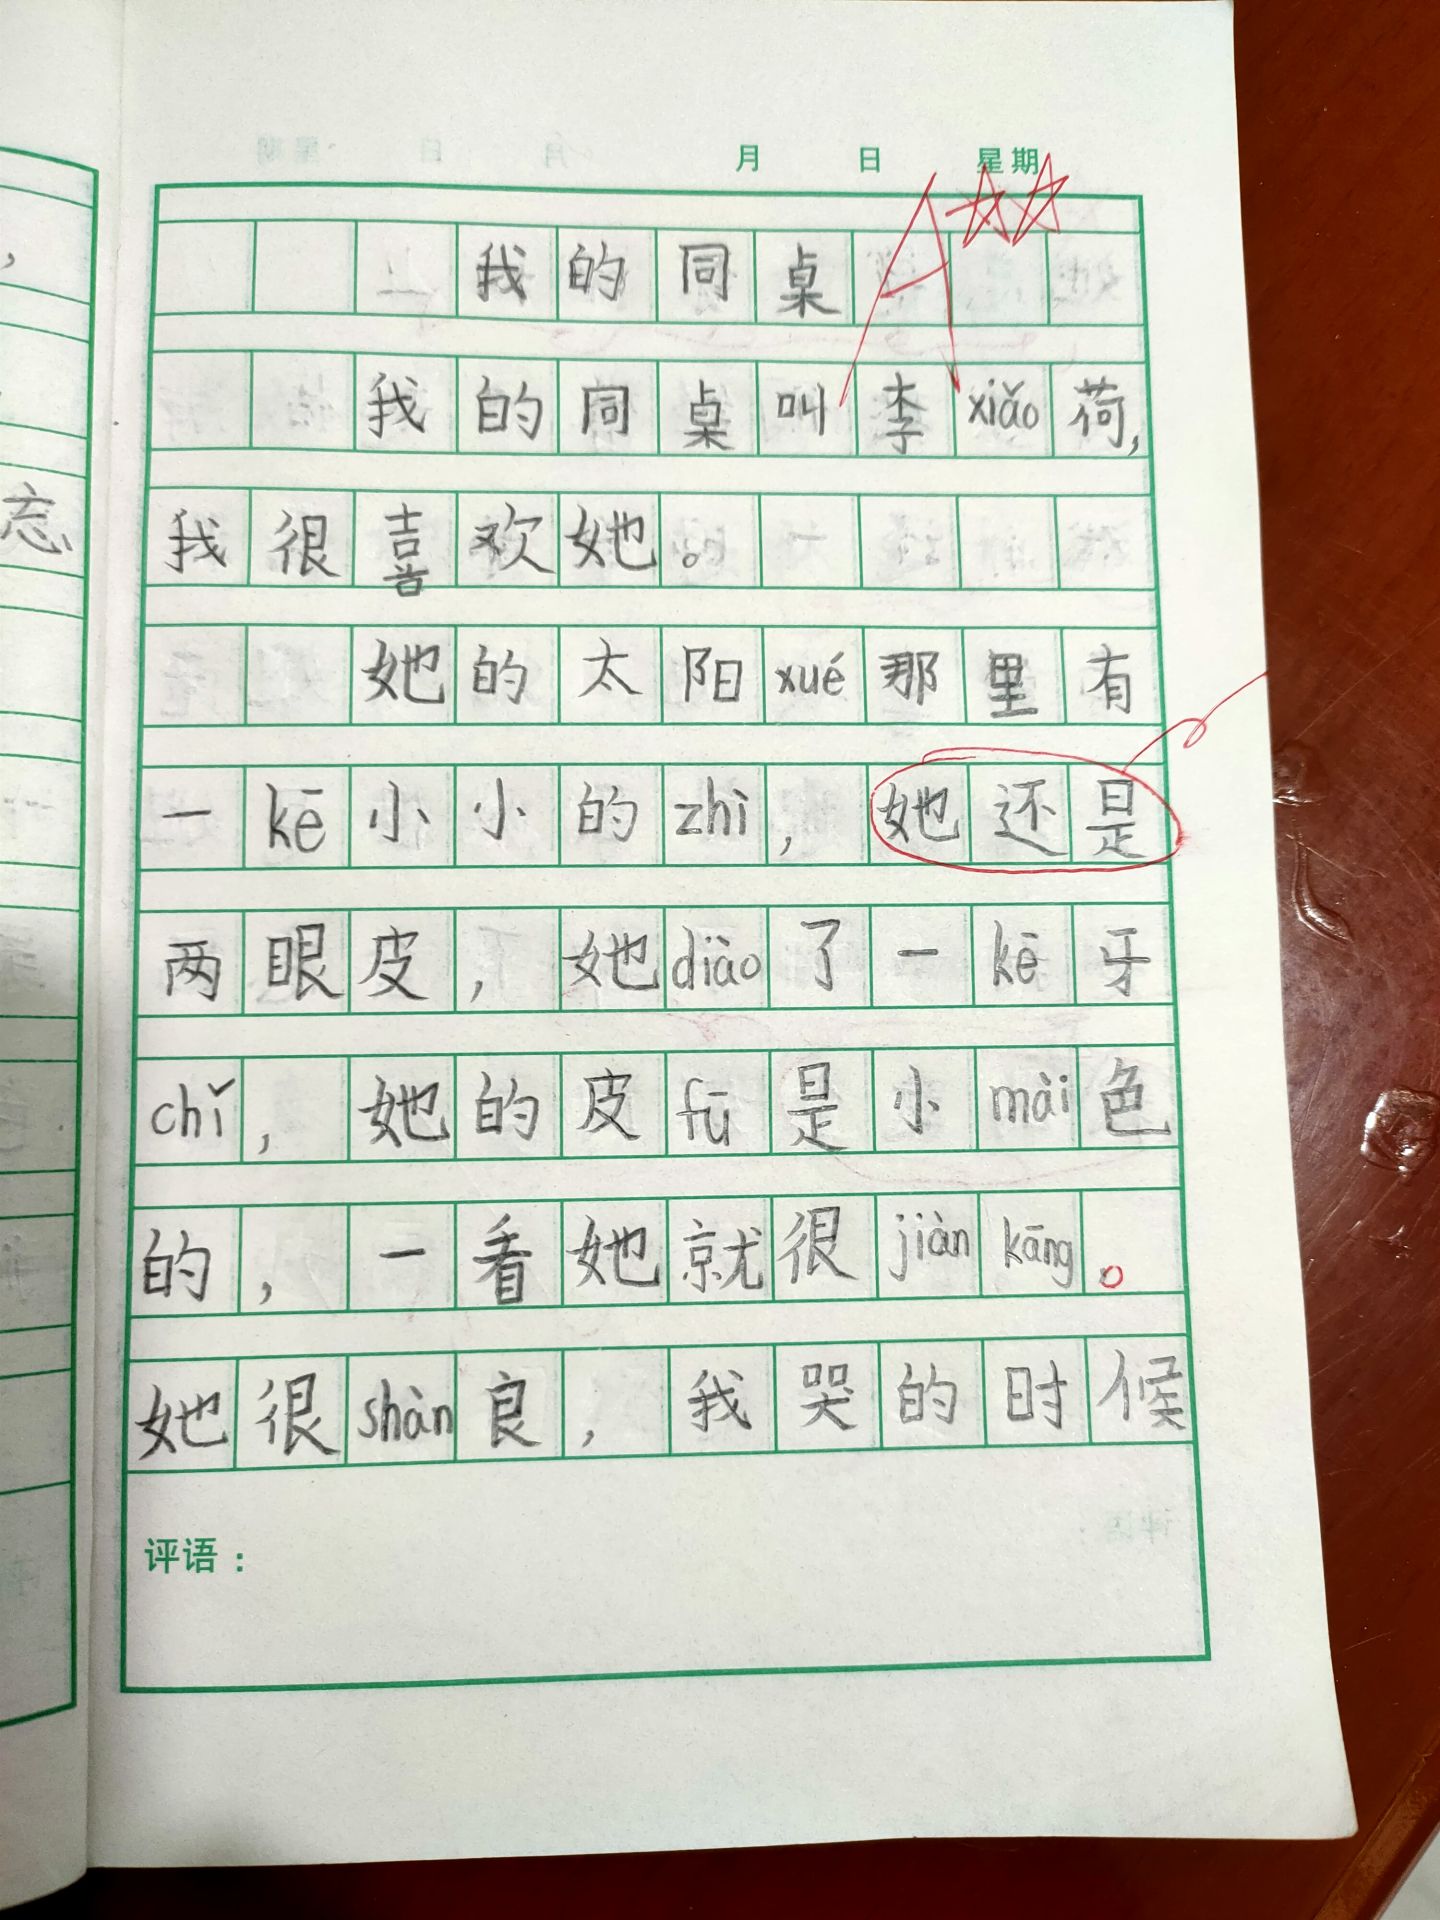 月 日 星期
A☆☆
我的同桌
我的同桌叫李xiǎo荷,
我很喜欢她。
她的太阳xué那里有
一kē小小的zhì,她还是
两眼皮,她diào了一kē牙
chǐ,她的皮fū是小mài色
的,一看她就很jiàn kāng。
她很shàn良,我哭的时候
评语：
忘